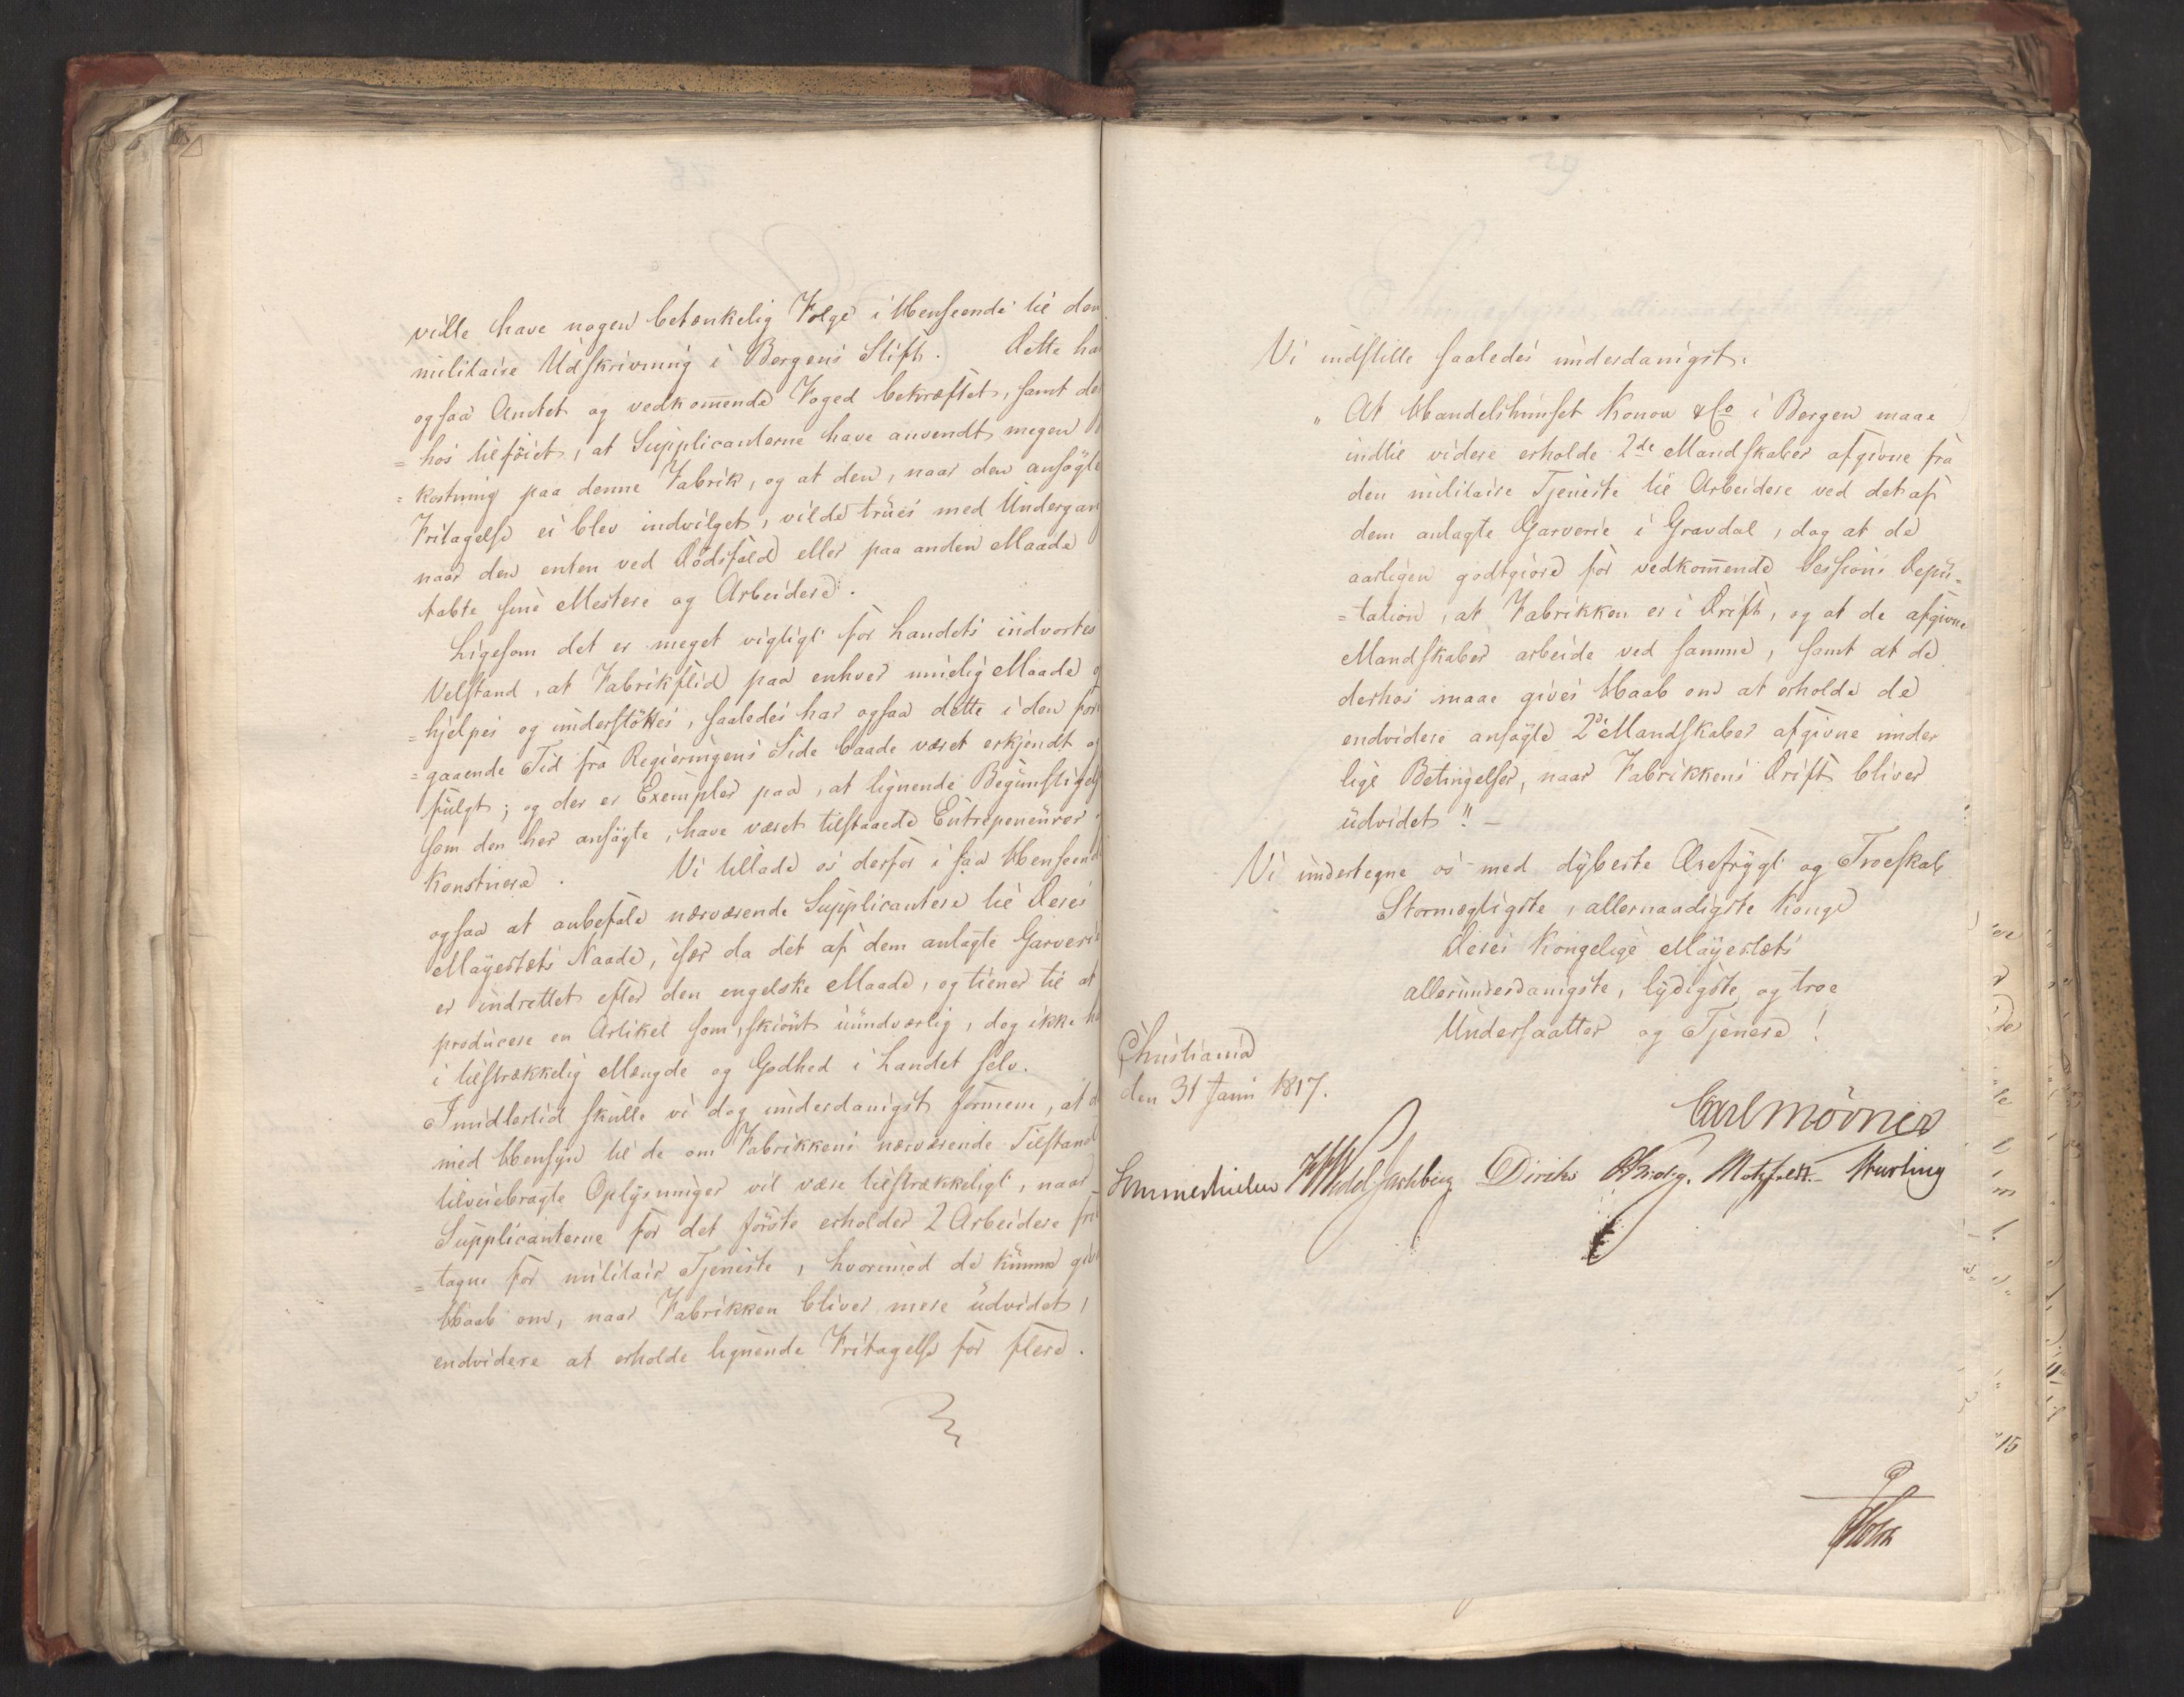 ville have nogen betænkelig Følge i Henseende til den
militaire Udskrivning i Bergens Stift. Dette har
ogsaa Amtet og vedkom̅ende Foged bekræftet, samt de
=hos tilföiet, at Supplicanterne have anvendt megen
=kostning paa denne Fabrik, og at den, naar den ansögte
Fritagelse ei blev indvilget, vilde trues med Undergan
naar den enten ved Dödsfald eller paa anden Maade
tabte sine Mestere og Arbeidere.
Ligesom det er meget vigtigt for Landets indvortes
Velstand, at Fabrikflid paa enhver muelig Maade
=hjelpes og understöttes, saaledes har ogsaa dette i den for
=gaaende Tid fra Regieringens Side baade været erkjendt og
fulgt; og der er Exempler paa, at lignende Begunstigels
som den her ansögte, have været tilstaaede Entrepeneurer
Konstnere. Vi tillade os derfor i saa Henseende
ogsaa at anbefale nærværende Supplicantere til Deres
Mayestæts Naade, især da det af dem anlagte Garverie
er indrettet efter den engelske Maade, og tiener til at
producere en Artikel som, skiönt uundværlig, dog ikke ha
i tilstrækkelig Mængde og Godhed i Landet selv.
Imidlertid skulle vi dog underdanigst formene, at d
med Hensyn til de om Fabrikkens nærværende Tilstand
tilveiebragte Oplysninger vil være tilstrækkeligt, naar
Supplicanterne for det förste erholder 2 Arbeidere fri
=tagne for militair Tjeneste, hvorimod de kunne giv
Haab om, naar Fabrikken bliver mere udvidet,
endvidere at erholde lignende Fritagelse for flere.
Vi indstille saaledes underdanigst:
"At Handelshuuset Konow & Co i Bergen maae
indtil videre erholde 2de Mandskaber afgivne fra
den militaire Tjeneste til Arbeidere ved det af
dem anlagte Garverie i Gravdal, dog at de
aarligen godtgiöre for vedkom̅ende Sessions Depu=
=tation, at Fabrikken er i Drift, og at de afgivne
Mandskaber arbeide ved samme, samt at de
derhos maae gives Haab om at erholde de
endvidere ansögte 2de Mandskaber afgivne under
lige Betingelser, naar Fabrikkens Drift bliver
udvidet".
Vi undertegne os med dybeste Ærefrygt og Troeskab
Stormægtigste, allernaadigste Konge
Deres Kongelige Mayestæts
allerunderdanigste, lydigste og troe
Undersaatter og Tjenere!
Christiania
den 31 Janu 1817.
Carl Mörner
Sommerhielm Wedel-Jarlsberg Diriks Krieg. Motzfeldt. Hurling
Holst